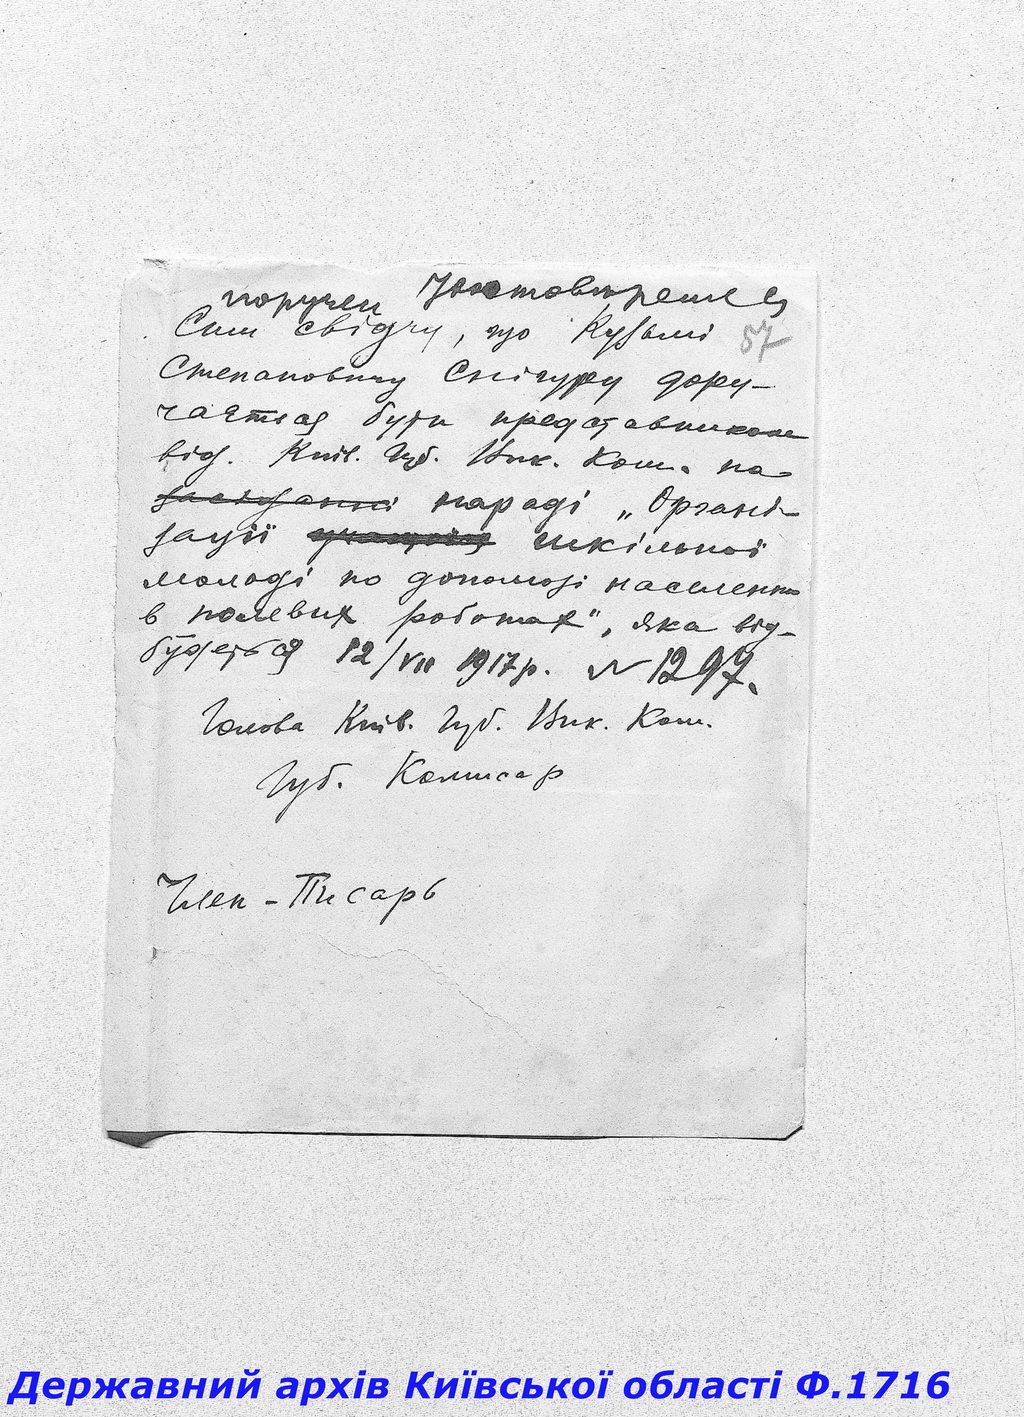 поручен
57
Сим свідчу, що Кузьмі
Степановичу Снігуру дору-
чається бути представником
від. Київ. Губ. Вик. Ком. на
засіданні нараді „Органі-
зації учащоїся шкільної
молоді по допомозі населенню
в полевих роботах“, яка від-
будеться 12/VII 1917 р. N 1297.
Голова Київ. Губ. Вик. Ком.
Губ. Комисар
Член - Писарь
Державний архів Київської області Ф.1716